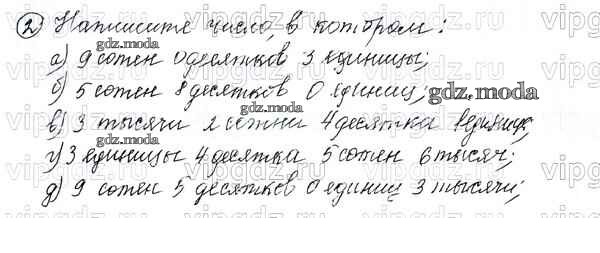 2) Напишите число, в котором:
а) 9 сотен 0 десятков 3 единицы;
б) 5 сотен 8 десятков 0 единиц;
в) 3 тысячи 2 сотни 4 десятка 8 единиц;
г) 3 единицы 4 десятка 5 сотен 6 тысяч;
д) 9 сотен 5 десятков 0 единиц 3 тысячи;
gdz.moda
gdz.moda
gdz.moda
gdz.moda
gdz.moda